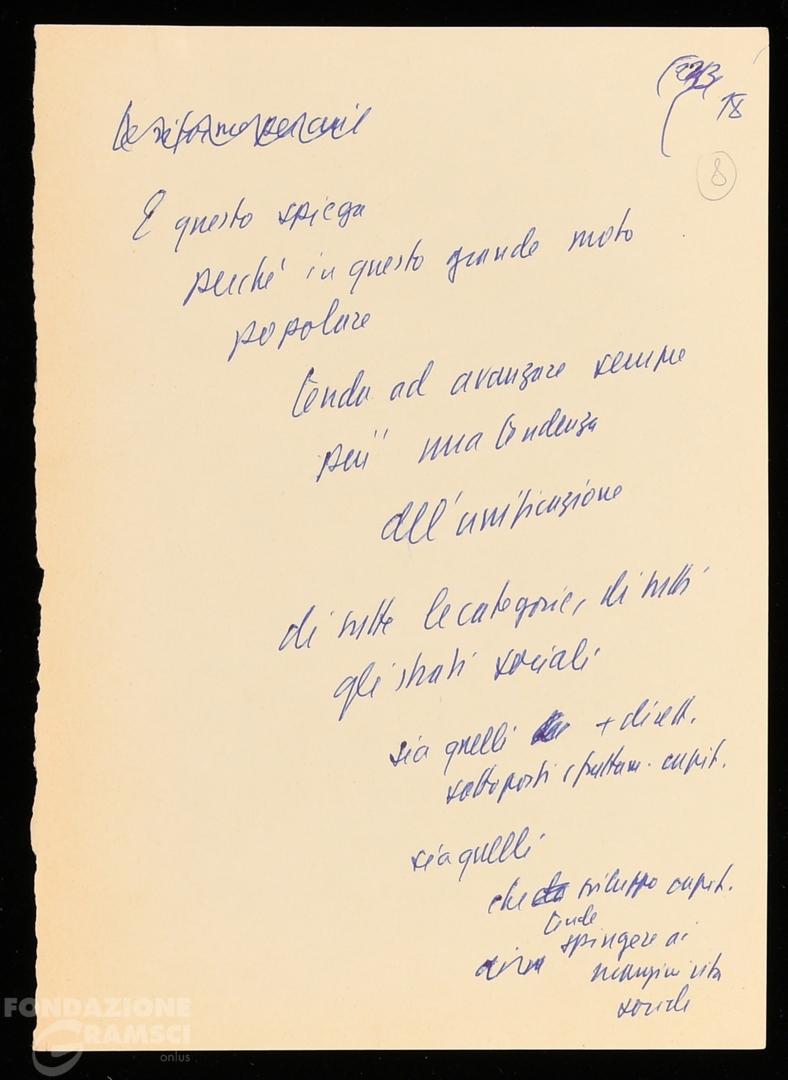 18
8
E questo spiega
perché in questo grande moto
popolare
tenda ad avanzare sempre
più una tendenza
all'unificazione
di tutte le categorie, di tutti
gli strati sociali
sia quelli + dirett.
sottoposti sfruttam. capit.
sia quelli
che sviluppo capit.
tende
spingere ai
margini vita
sociale
FONDAZIONE
GRAMSCI
onlus